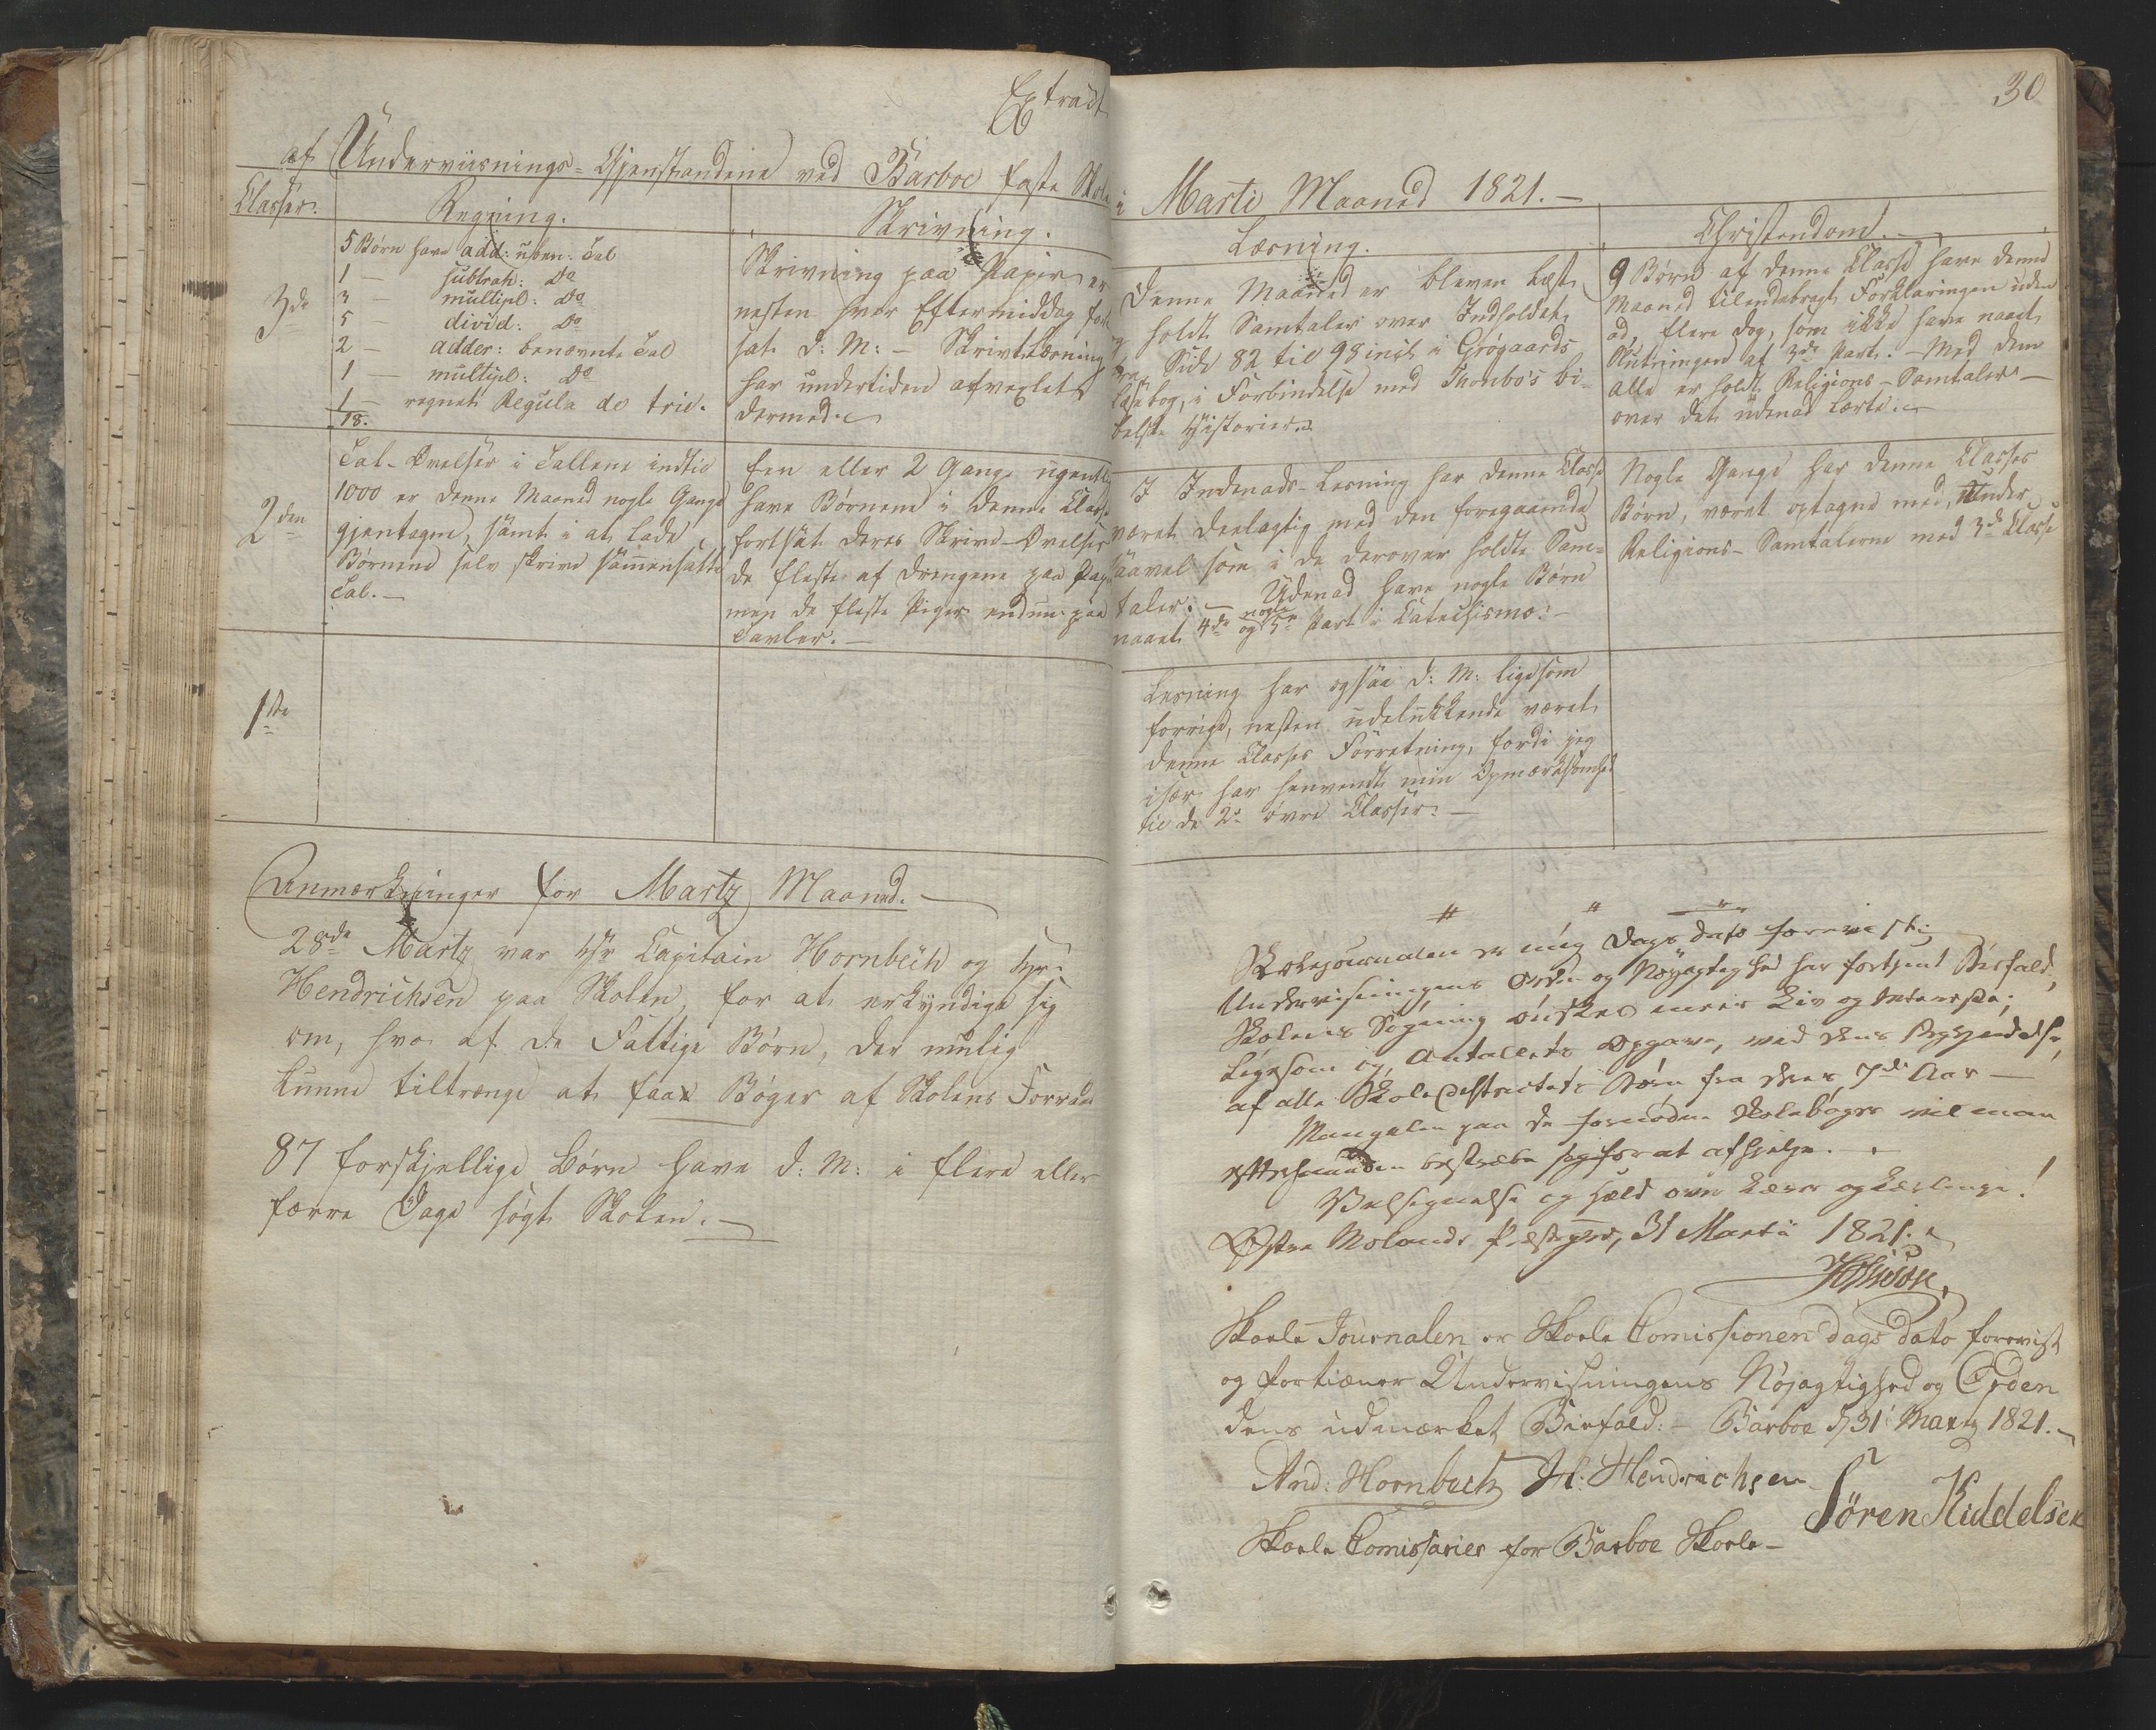 Extract
30
af Underviisnings-Gjenstandene ved Barboe faste Skole
i Martii Maaned 1821. –
Classer.
Regning.
Skrivning.
Læsning.
Christendom. –
3de
5 Børn have add: uben: Tal
1 – subtrah: Do
3 – multipl: Do
5 – divid: Do
2 – adder: benævnte Tal
1 – multipl: Do
1 – regnet Regula de trie.
18.
Skrivning paa Papir er
nesten hver Eftermiddag fort
sat d: M: – Skrivtlæsning
har undertiden afvexlet
dermed.
Denne Maaned er bleven læst
og holdt Samtaler over Indholdet
fra Side 82 til 98 incl: i Grøgaards
Læsebog, i Forbindelse med Thonbo's bi-
belske Historier.
9 Børn af denne Classe have denne
Maaned tilendebragt Forklaringen uden
ad, flere dog, som ikke have naaet
Slutningen af 3de Part. – Med dem
alle er holdt Religions-Samtaler –
over det udenad Lærte. –
2den
Tal-Øvelser i Tallene indtil
1000 er denne Maaned nogle Gange
gjentagen, samt i at lade
Børnene selv skrive sammensatte
Tal. –
Een eller 2 Gange ugentlig
have Børnene i denne Classe
fortsat deres Skrive-Øvelser
de fleste af Drengene paa Papir
men de fleste Piger endnu paa
Tavler. –
I Indenads-Læsning har denne Classe
været deelagtig med den foregaaende
saavel som i de derover holdte Sam-
taler. – Udenad have nogle Børn
naaet 4de og nogle 5te Part i Catechismo: –
Nogle Gange har denne Classes
Børn, været optagne med, Under
Religions-Samtalerne med 3de Classe
1ste
Læsning har ogsaa d: M: ligesom
forrige, nesten udelukkende været
denne Classes Forretning, fordi jeg
især har henvendt min Opmærksomhed
til de 2de øvre Classer. –
Anmærkninger for Martz Maaned. –
28de Martz var Hr Capitain Hornbech og Hr:
Hendrichsen paa Skolen, for at erkyndige sig
om, hvo af de Fattige Børn, der mulig
kunne tiltrænge at faae Bøger af Skolens Forraad
87 forskjellige Børn have d: M: i flere eller
færre Dage søgt Skolen. –
Skolejournalen er mig Dags dato foreviist;
Underviisningens Orden og Nøyagtighed har fortjent Bifald;
Skolens Søgning ønskes meer Liv og Interesse;
Ligesom og, Antallets Opgave, ved dens Begyndelse,
af alle Skole Districtets Børn fra deres 7de Aar –
Mangelen paa de fornødne Skolebøger vil man
efterhaanden bestræbe sig for at afhjelpe. –
Velsignelse og Held over Lærer og Lærlinge!
Østre Molands Præstegrd, 31 Martii 1821.
Skole Journalen er Skole Comissionen dags dato forevist
og fortiæner Underviisningens Nøjagtighed og Orden
dens udmærket Biefald: – Barboe d 31 Martz 1821. –
And: Hornbech H: Hendrichsen
Sören Kiddelsen
Skole Comissarier for Barboe Skole –